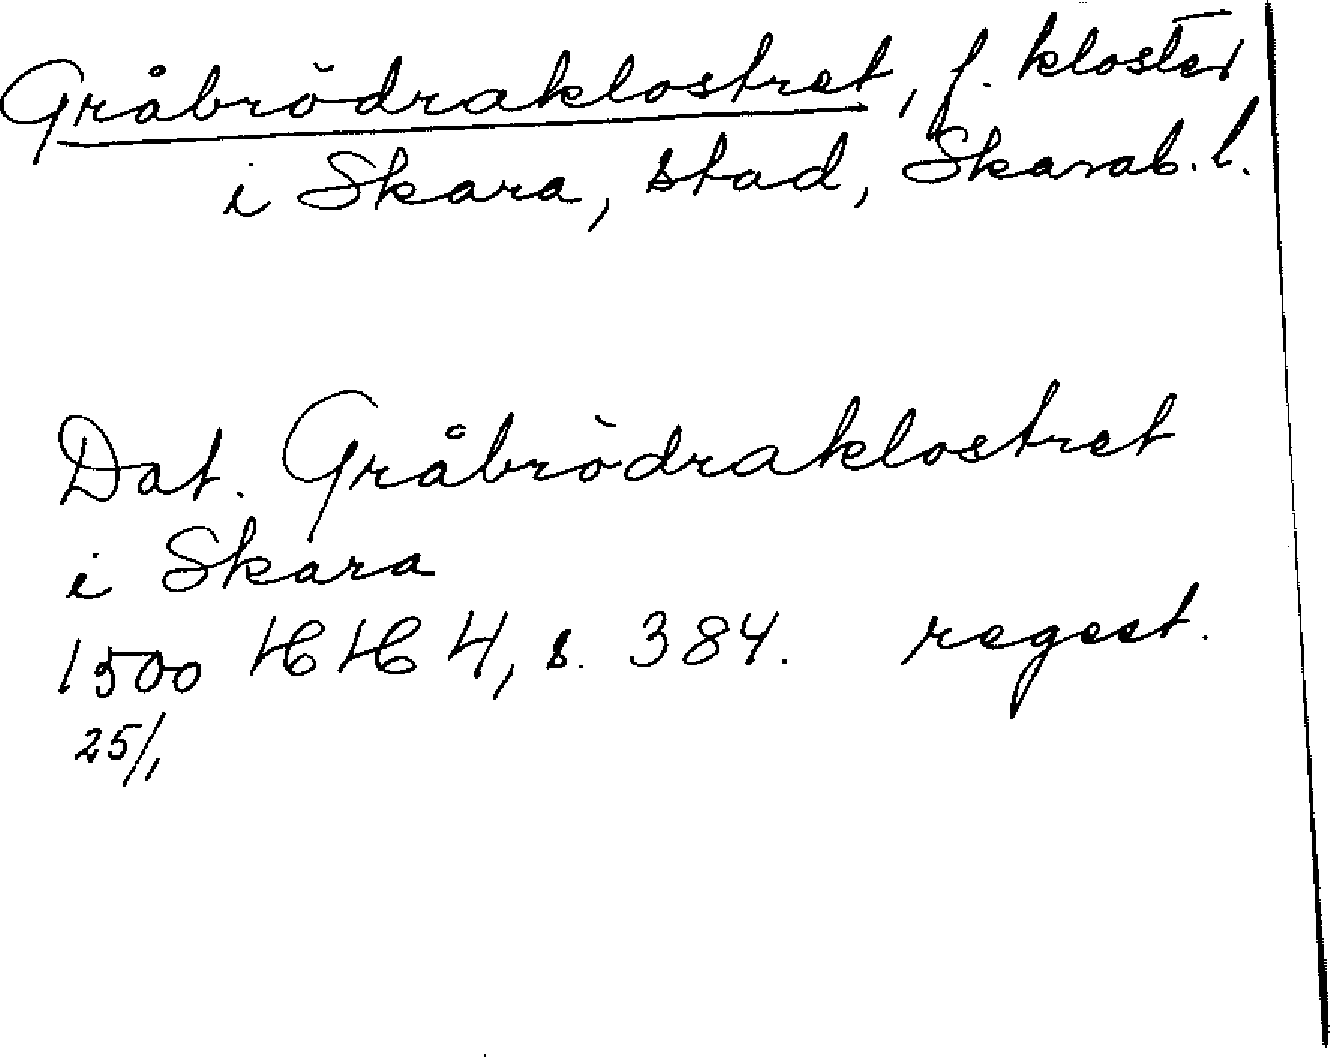 Gråbrödraklostret, f. kloster
i Skara, stad, Skarab. l.
Dat. Gråbrödraklostret
i Skara
1500 HH 4, s. 384. regest.
25/1